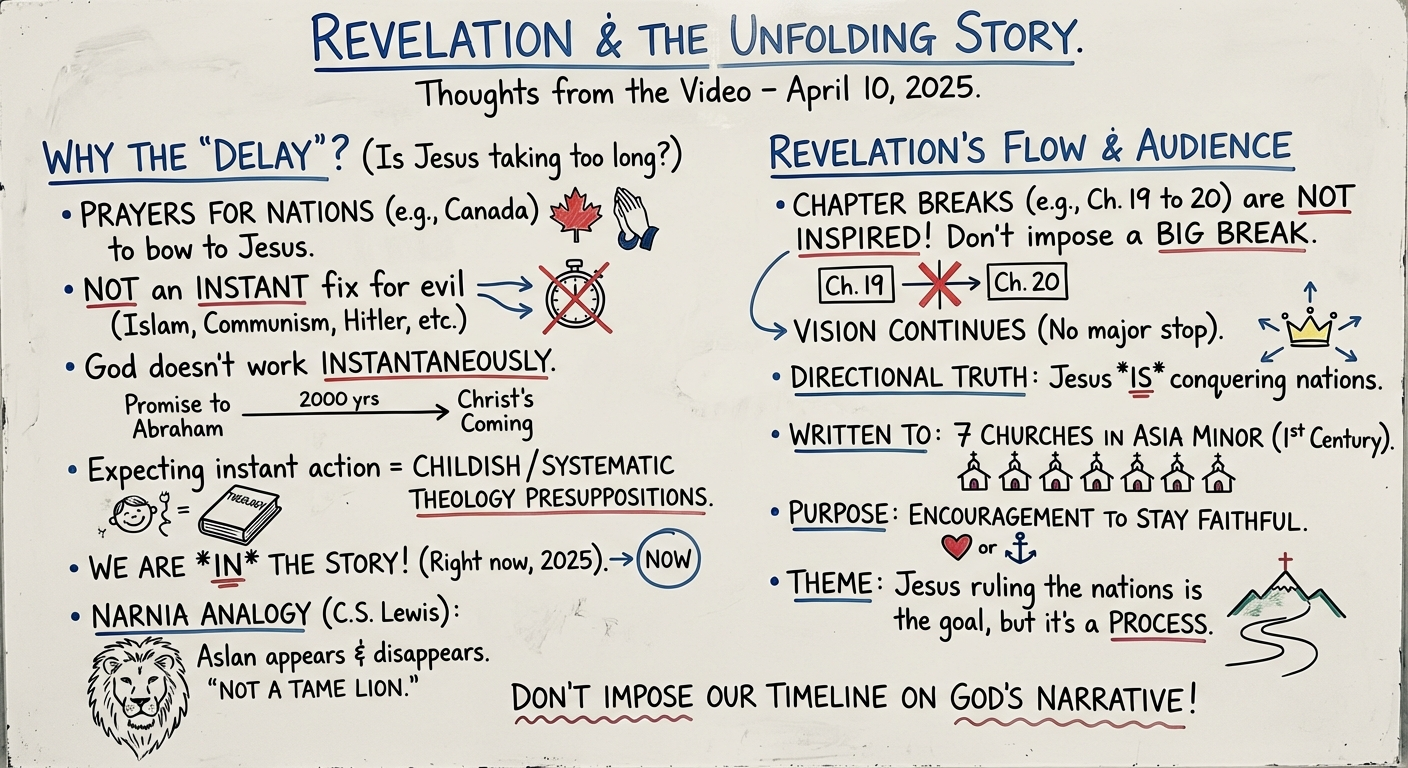 REVELATION & THE UNFOLDING STORY.
Thoughts from the Video – April 10, 2025.
WHY THE "DELAY"? (Is Jesus taking too long?)
• PRAYERS FOR NATIONS (e.g., Canada)
to bow to Jesus.
• NOT an INSTANT fix for evil
(Islam, Communism, Hitler, etc.)
• God doesn't work INSTANTANEOUSLY.
Promise to
Abraham
2000 yrs
Christ's
Coming
• Expecting instant action = CHILDISH/SYSTEMATIC
THEOLOGY PRESUPPOSITIONS.
=
THEOLOGY
• WE ARE *IN* THE STORY! (Right now, 2025). → NOW
• NARNIA ANALOGY (C.S. Lewis):
Aslan appears & disappears.
"NOT A TAME LION."
REVELATION'S FLOW & AUDIENCE
• CHAPTER BREAKS (e.g., Ch. 19 to 20) are NOT
INSPIRED! Don't impose a BIG BREAK.
Ch. 19 Ch. 20
VISION CONTINUES (No major stop).
• DIRECTIONAL TRUTH: Jesus *IS* conquering nations.
• WRITTEN TO: 7 CHURCHES IN ASIA MINOR (1st Century).
• PURPOSE: ENCOURAGEMENT TO STAY FAITHFUL.
or
• THEME: Jesus ruling the nations is
the goal, but it's a PROCESS.
DON'T IMPOSE OUR TIMELINE ON GOD'S NARRATIVE!